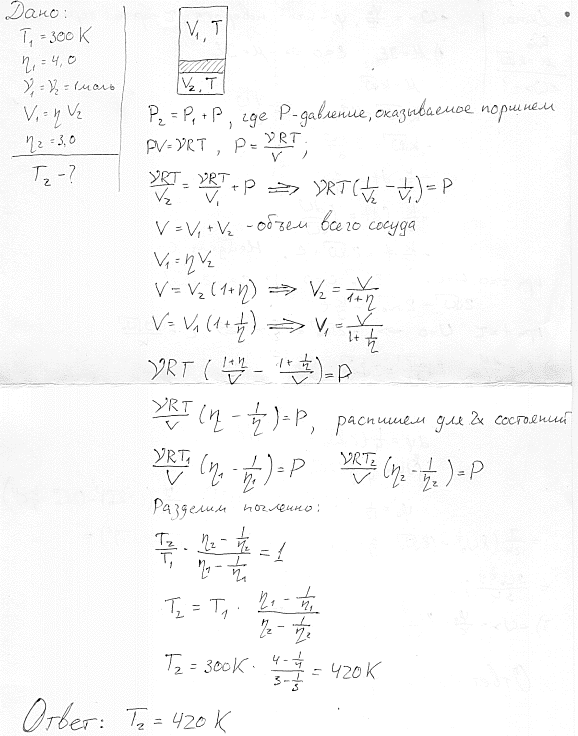 Дано:
T₁ = 300 K
η₁ = 4,0
ν₁ = ν₂ = 1 моль
V₁ = η V₂
η₂ = 3,0
T₂ - ?
V₁, T
V₂, T
P₂ = P₁ + P, где P - давление, оказываемое поршнем
PV = νRT, P = νRT/V;
νRT/V₂ = νRT/V₁ + P ⇒ νRT(1/V₂ - 1/V₁) = P
V = V₁ + V₂ - объем всего сосуда
V₁ = ηV₂
V = V₂(1+η) ⇒ V₂ = V/(1+η)
V = V₁(1+1/η) ⇒ V₁ = V/(1+1/η)
νRT((1+η)/V - (1+1/η)/V) = P
νRT/V (η - 1/η) = P, распишем для 2х состояний
νRT₁/V (η₁ - 1/η₁) = P νRT₂/V (η₂ - 1/η₂) = P
Разделим почленно:
T₂/T₁ · (η₂ - 1/η₂)/(η₁ - 1/η₁) = 1
T₂ = T₁ · (η₁ - 1/η₁)/(η₂ - 1/η₂)
T₂ = 300K · (4 - 1/4)/(3 - 1/3) = 420K
Ответ: T₂ = 420 K